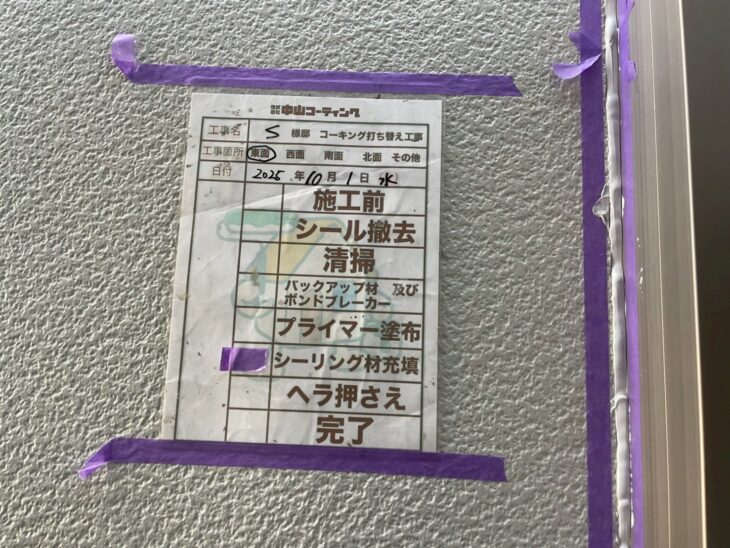 株式会社 中山コーティング
工事名 S 様邸 コーキング打ち替え工事
工事箇所 東面 西面 南面 北面 その他
日付 2025 年 10 月 1 日 水
施工前
シール撤去
清掃
バックアップ材 及び
ボンドブレーカー
プライマー塗布
シーリング材充填
ヘラ押さえ
完了